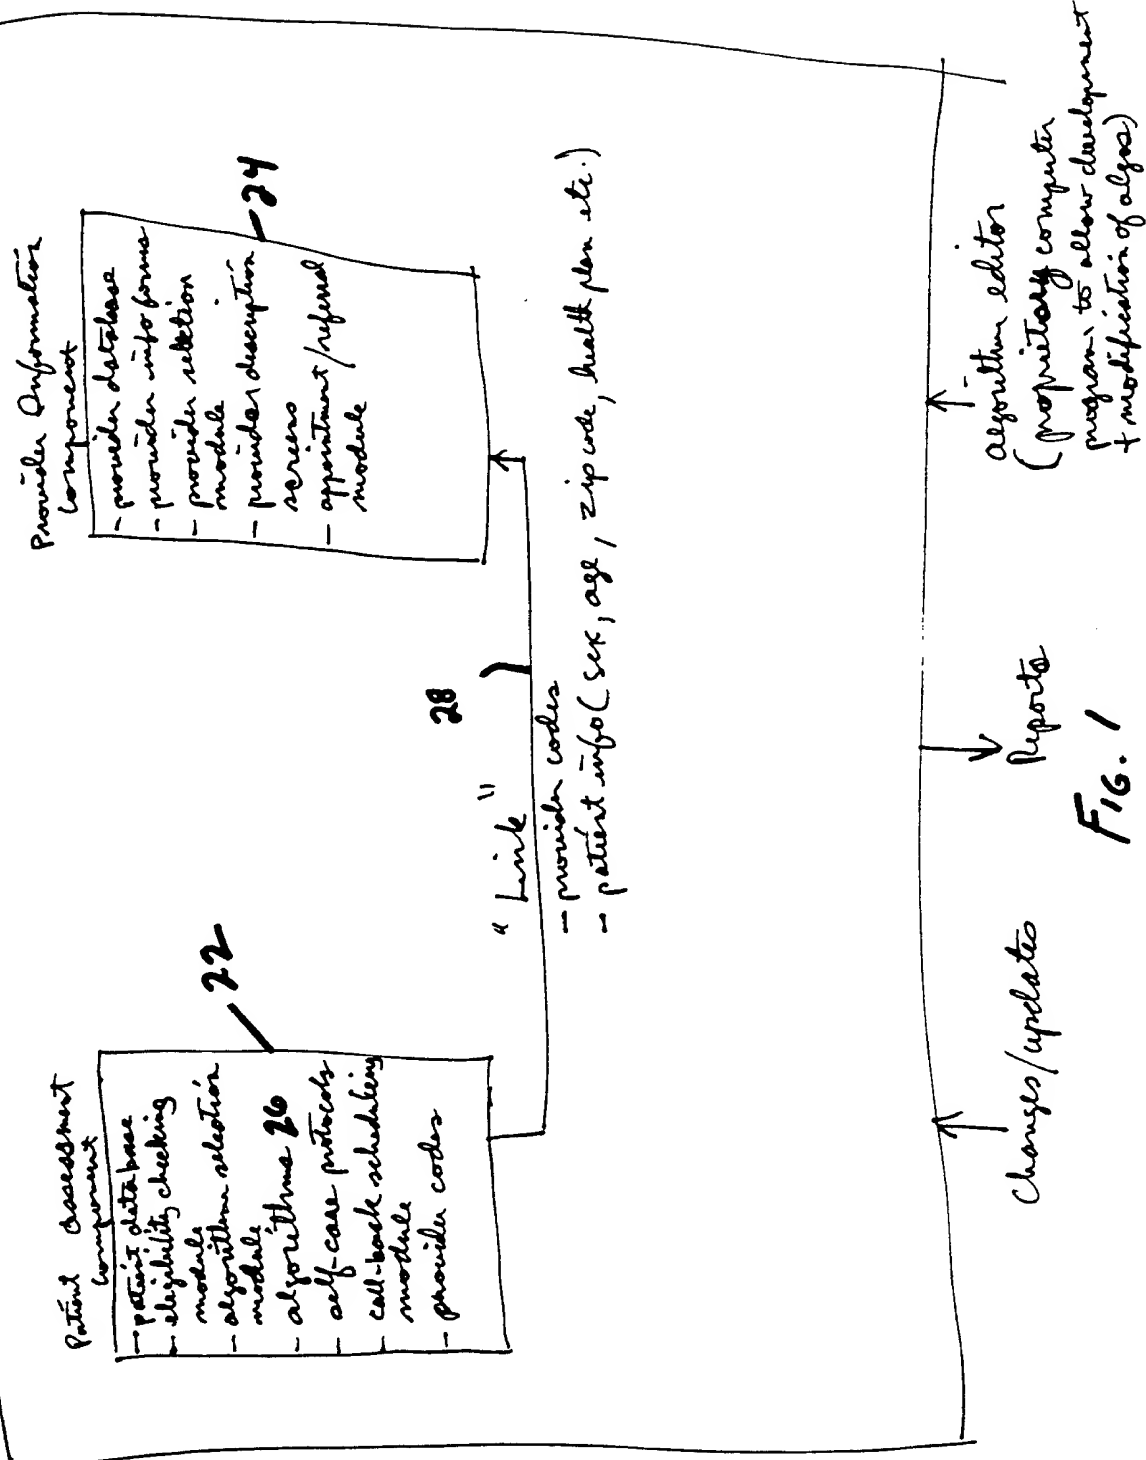 Patient assessment
component
- patient database
- eligibility checking
module
- algorithm selection
module
- algorithms 26
- self-care protocols
- call-back scheduling
module
- provider codes
22
Provider Information
Component
- provider database
- provider info forms
- provider selection
module
- provider description
screens
- appointment/referral
module
24
28
"Link"
- provider codes
- patient info (sex, age, zip code, health plan etc.)
Changes/updates
Reports
algorithm editor
(proprietary computer
program to allow development
+ modification of algos)
FIG. 1